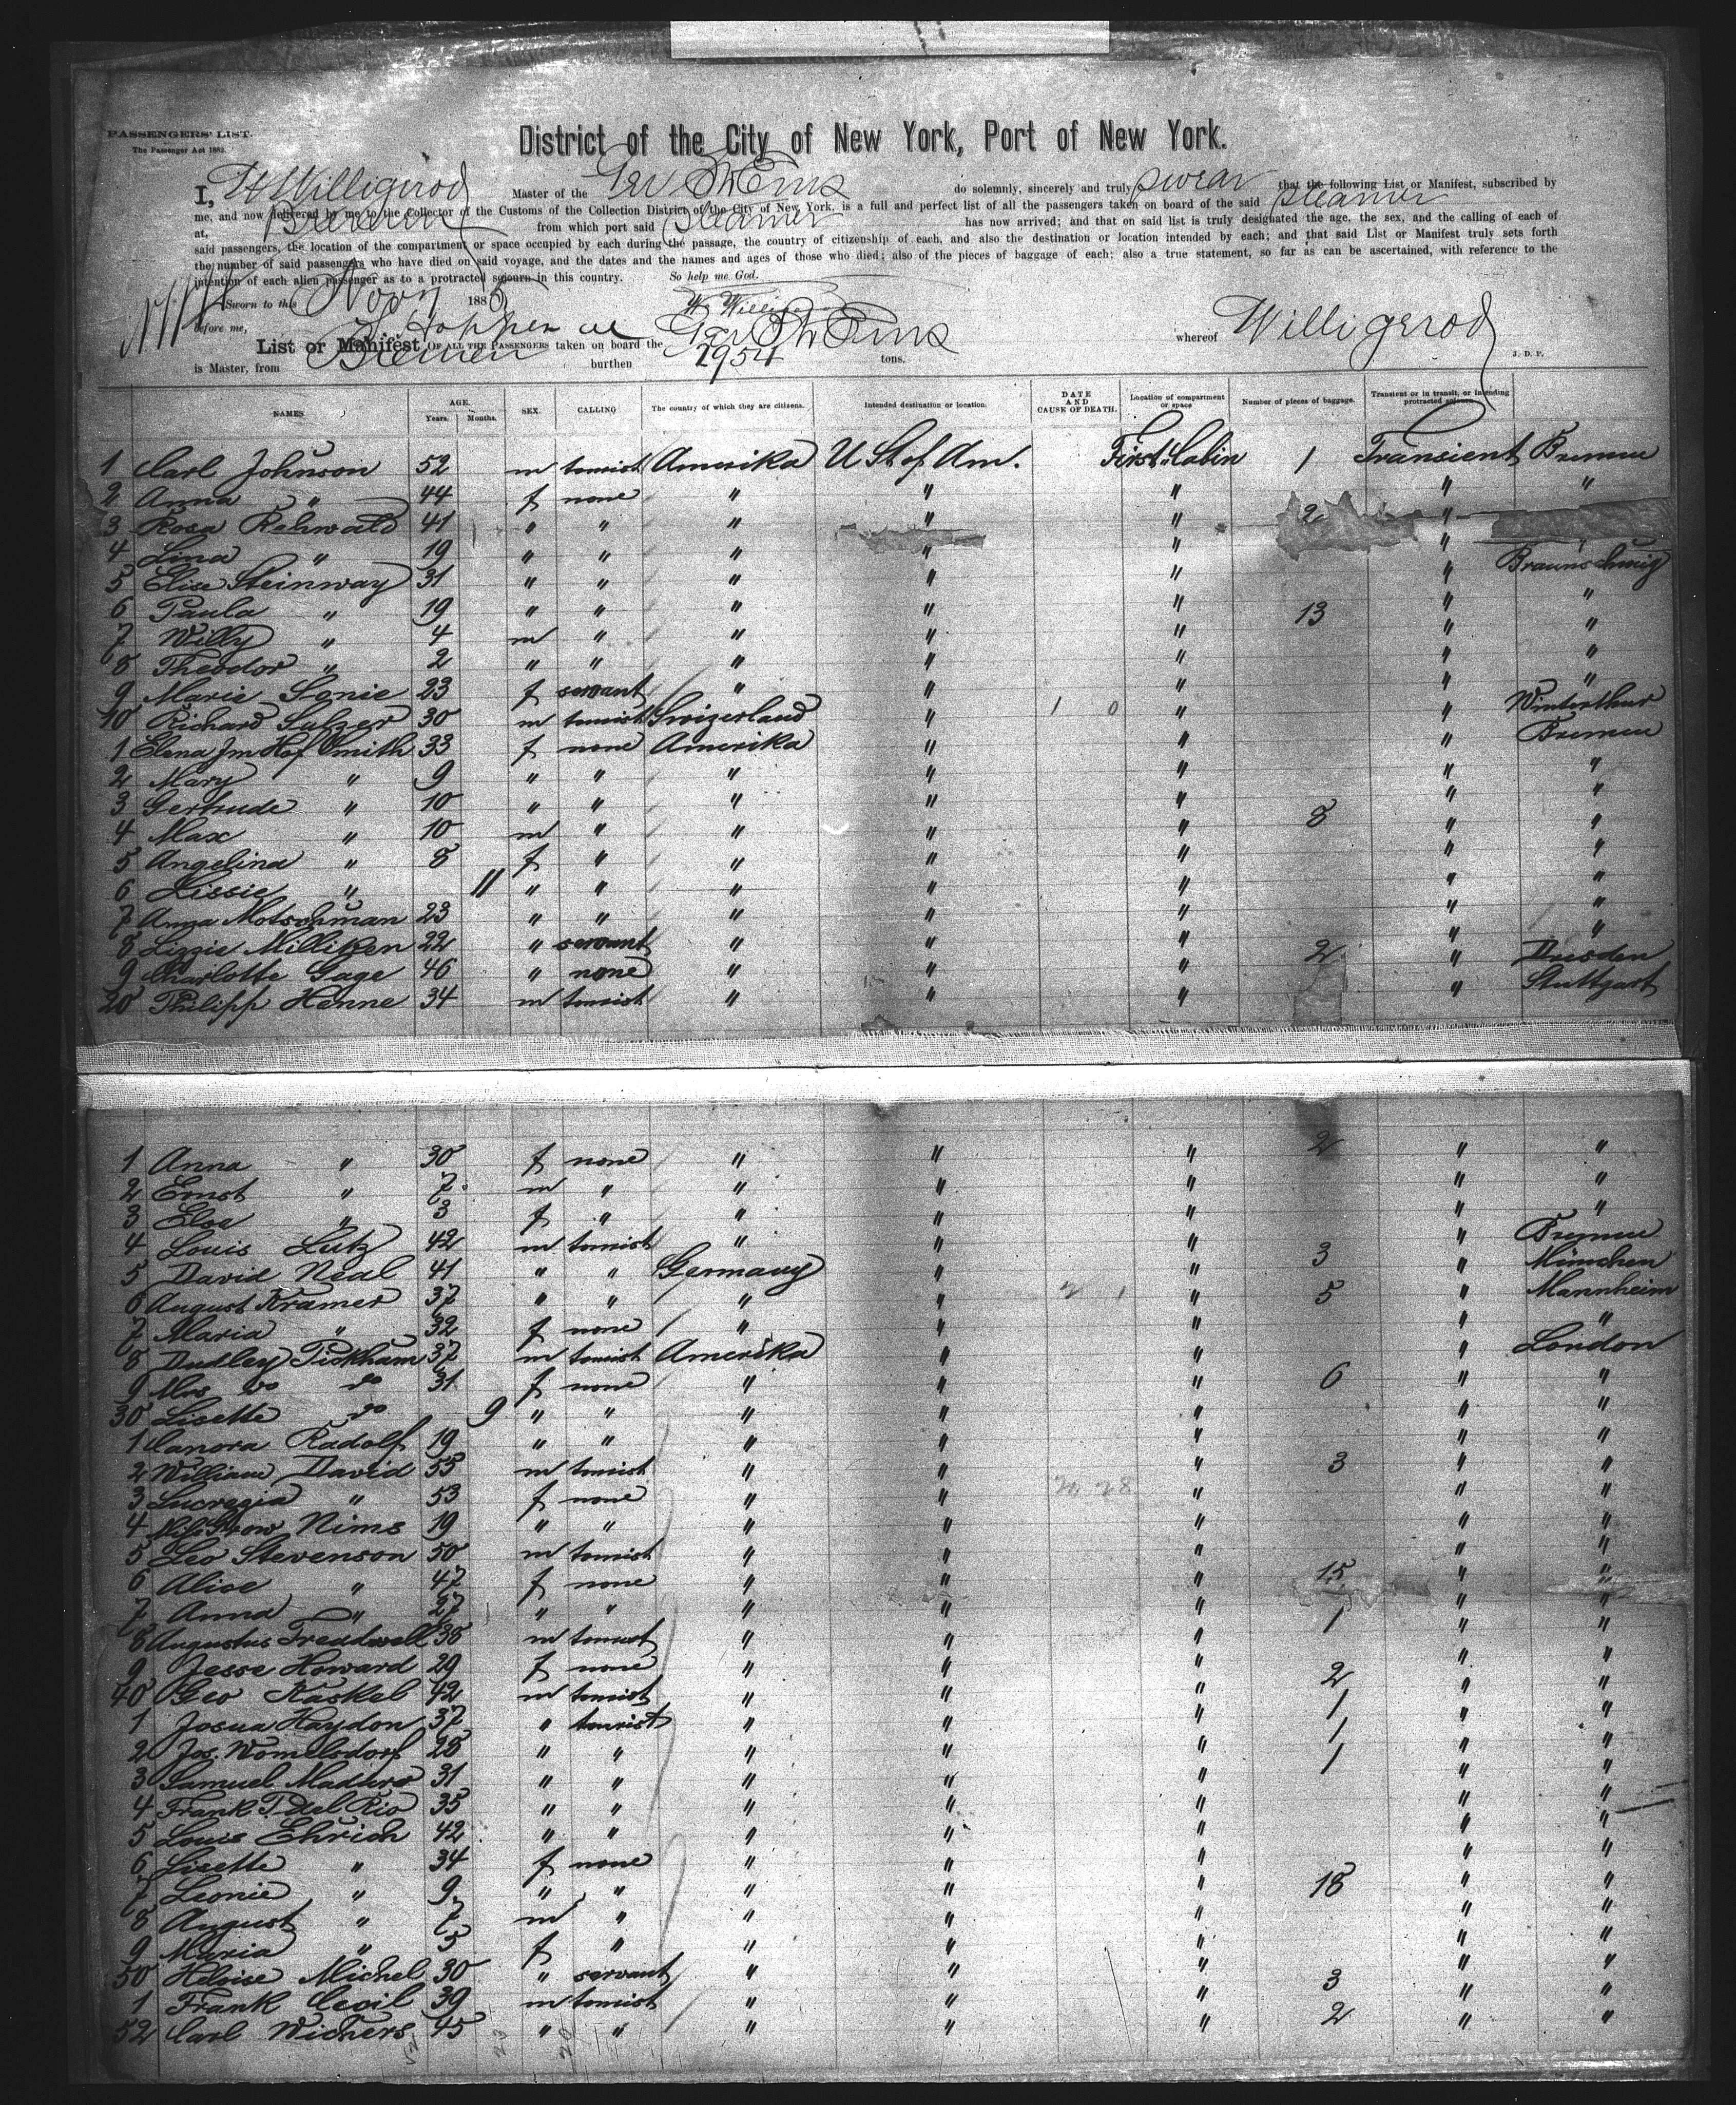 PASSENGERS' LIST.
The Passenger Act 1882.
District of the City of New York, Port of New York.
I, W Willigerod Master of the Ger St Ems do solemnly, sincerely and truly swear that the following List or Manifest, subscribed by
me, and now delivered by me to the Collector of the Customs of the Collection District of the City of New York, is a full and perfect list of all the passengers taken on board of the said steamer
at, Bremen from which port said steamer has now arrived; and that on said list is truly designated the age, the sex, and the calling of each of
said passengers, the location of the compartment or space occupied by each during the passage, the country of citizenship of each, and also the destination or location intended by each; and that said List or Manifest truly sets forth
the number of said passengers who have died on said voyage, and the dates and the names and ages of those who died; also of the pieces of baggage of each; also a true statement, so far as can be ascertained, with reference to the
intention of each alien passenger as to a protracted sojourn in this country. So help me God.
Sworn to this Nov 188
before me,
List or Manifest OF ALL THE PASSENGERS taken on board the Ger St Ems whereof Willigerod
is Master, from Bremen burthen 2954 tons. J. D. P.
NAMES AGE. Years. Months. SEX. CALLING The country of which they are citizens. Intended destination or location. DATE AND CAUSE OF DEATH. Location of compartment or space Number of pieces of baggage. Transient or in transit, or intending protracted sojourn.
1 Carl Johnson 52 m tourist Amerika U St of Am. First Cabin 1 Transient Bremen
2 Anna " 44 f none " " " " "
3 Rosa Rehwald 41 " " " " " 2 "
4 Lina " 19 " " " " " " "
5 Elise Steinway 31 " " " " " " Braunschweig
6 Paula " 19 " " " " " 13 " "
7 Willy " 4 m " " " " " "
8 Theodor " 2 " " " " " " "
9 Marie Sonie 23 f servant " " " " "
10 Richard Sulzer 30 m tourist Swizerland " 1 0 " " Winterthur
1 Elena Im Hof Smith 33 f none Amerika " " " Bremen
2 Mary " 9 " " " " " " "
3 Gertrude " 10 " " " " " " "
4 Max " 10 m " " " " 8 " "
5 Angelina " 8 f " " " " " "
6 Lissie " 11 " " " " " " "
7 Anna Motschman 23 " " " " " " "
8 Lizzie Milliken 22 " servant " " " " "
9 Charlotte Gage 46 " none " " " 2 " Dresden
20 Philipp Henne 34 m tourist " " " " Stuttgart
1 Anna " 30 f none " " " 2 " "
2 Ernst " 7 m " " " " " "
3 Else " 3 f " " " " " "
4 Louis Lutz 42 m tourist " " " " Bremen
5 David Neal 41 " " Germany " " 3 " München
6 August Kramer 37 " " " " 2 1 " 5 " Mannheim
7 Maria " 32 f none " " " " "
8 Dudley Pickham 37 m tourist Amerika " " " London
9 Mrs do do 31 f none " " " 6 " "
30 Lisette do 9 " " " " " " "
1 Canora Radolf 19 " " " " " " "
2 William David 55 m tourist " " " 3 " "
3 Lucrezia " 53 f none " " " " "
4 Nims 19 " " " " " " "
5 Leo Stevenson 50 m tourist " " " " "
6 Alice " 47 f none " " " 15 " "
7 Anna " 27 " " " " " " "
8 Augustus Treadwell 38 m tourist " " " 1 " "
9 Jesse Howard 29 f none " " " " "
40 Geo Kaskel 42 m tourist " " " 2 " "
1 Josua Haydon 37 " tourist " " " 1 " "
2 Jos. Womelsdorf 28 " " " " " 1 " "
3 Samuel Maduro 31 " " " " " 1 " "
4 Frank T. del Rio 35 " " " " " " "
5 Louis Ehrich 42 " " " " " " "
6 Lisette " 34 f none " " " " "
7 Leonie " 9 " " " " " 18 " "
8 August " 7 m " " " " " "
9 Maria " 5 f " " " " " "
50 Heloise Michel 30 " servant " " " " "
1 Frank Cecil 39 m tourist " " " 3 " "
52 Carl Wichers 45 " " " " " 2 " "